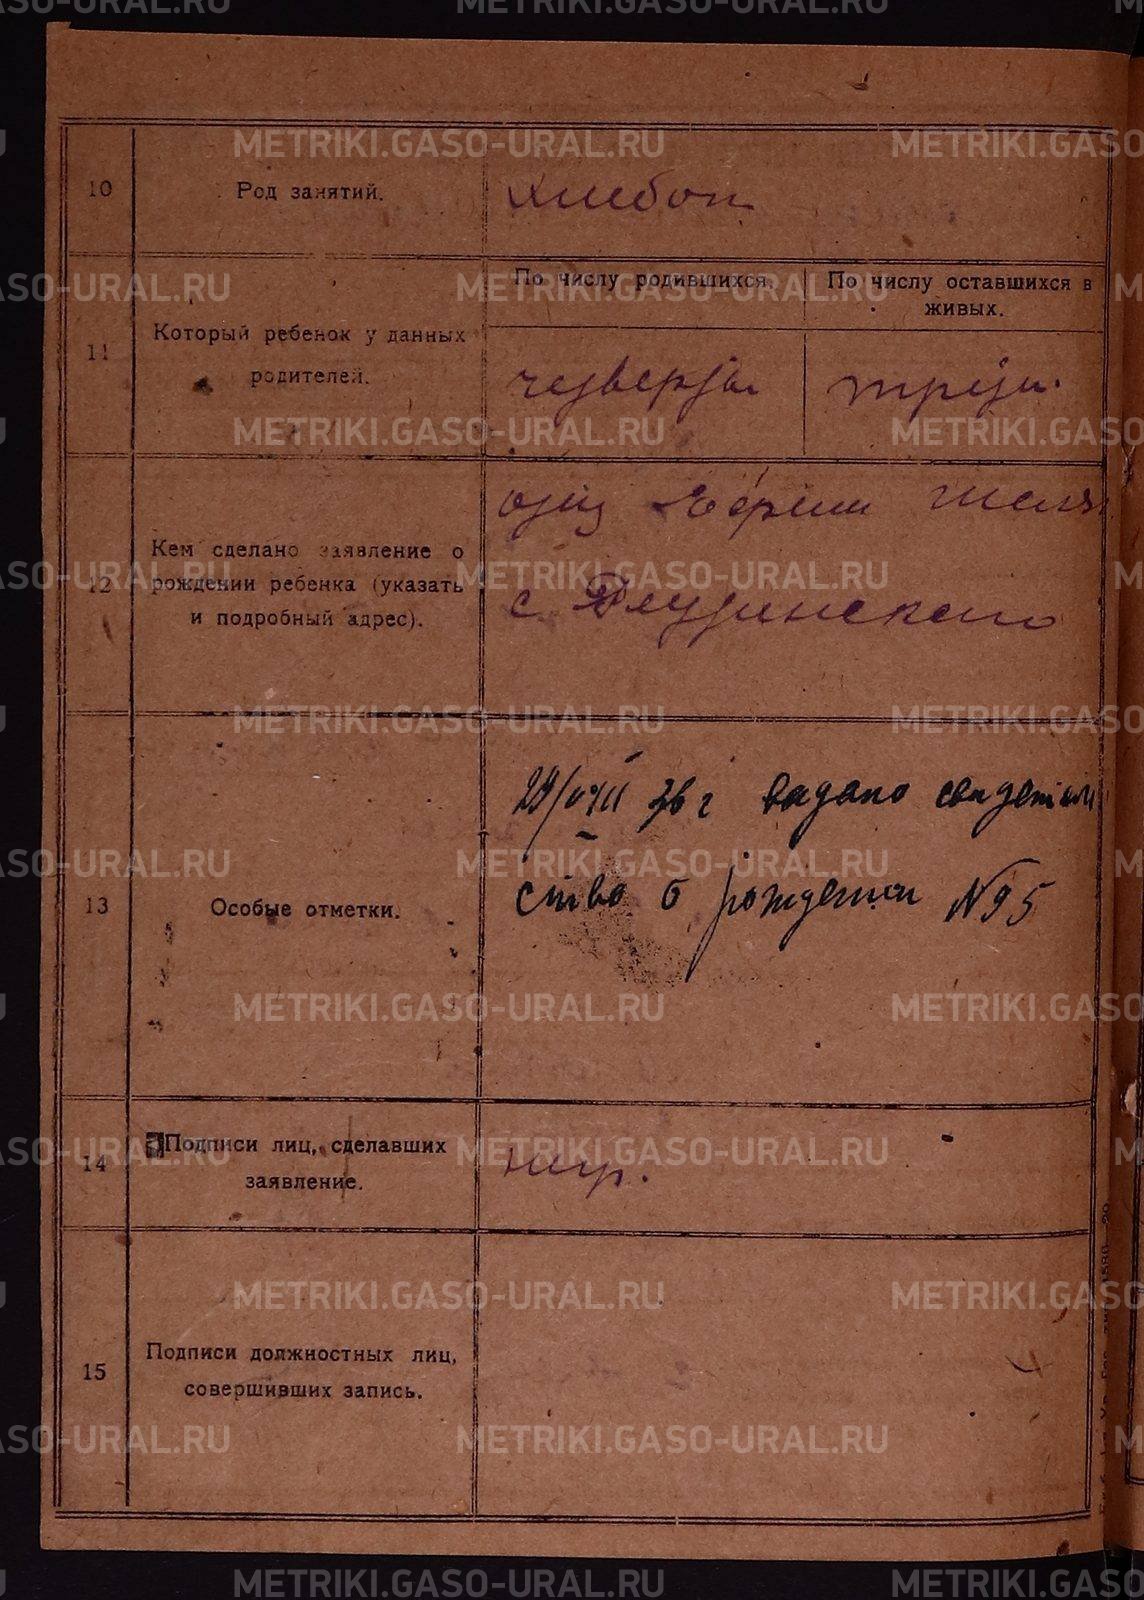 10 Род занятий. хлебоп
11 Который ребенок у данных родителей.
По числу родившихся. По числу оставшихся в живых.
четвертый третий.
12 Кем сделано заявление о
рождении ребенка (указать
и подробный адрес).
отец
с.
13 Особые отметки.
29/VIII 36 г выдано свидетель
ство о рождении №95
14 Подписи лиц, сделавших
заявление. негр.
15 Подписи должностных лиц,
совершивших запись.
METRIKI.GASO-URAL.RU